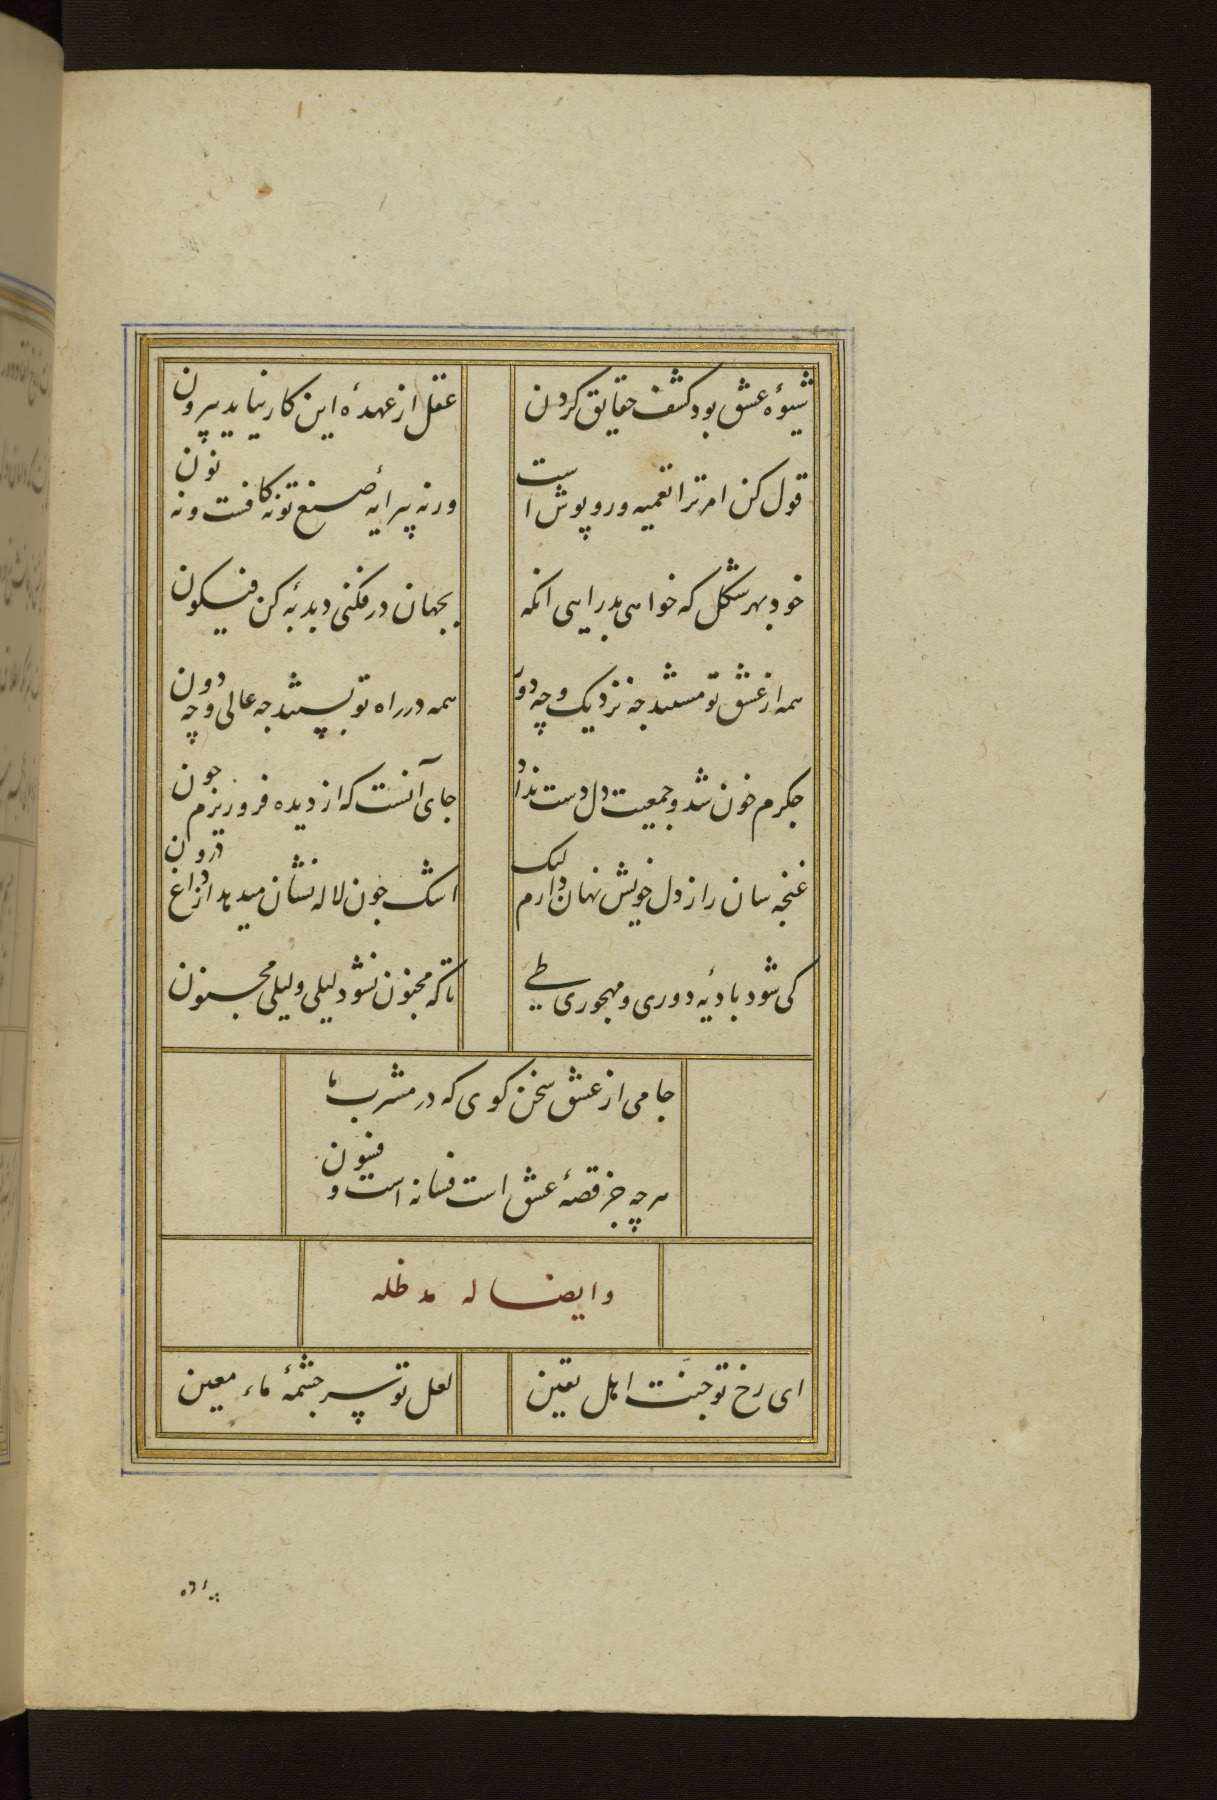 شیوهٔ عشق بود کشف حقایق کردن
عقل از عهدهٔ این کار نیاید بیرون
قول کن امر ترا تعمیه و روپوش است
ورنه پیرایهٔ صنع تو نه کافست و نه نون
خود بهر شکل که خواهی بدر ایی انکه
بجهان درفکنی دبدبهٔ کن فیکون
همه از عشق تو مستند چه نزدیک و چه دور
همه در راه تو پستند چه عالی و چه دون
جکرم خون شد و جمعیت دل دست نداد
جای آنست که از دیده فرو ریزم خون
غنجه سان راز دل خویش نهان دارم لیک
اشک جون لاله نشان میدهد از داغ درون
کی شود بادیهٔ دوری و مهجوری طی
تا که مجنون نشود لیلی و لیلی مجنون
جامی از عشق سخن کوی که در مشرب ما
هرچه جز قصهٔ عشق است فسانه است و فسون
وایضا له مد ظله
ای رخ تو جنت اهل یقین
لعل تو سرچشمهٔ ماء معین